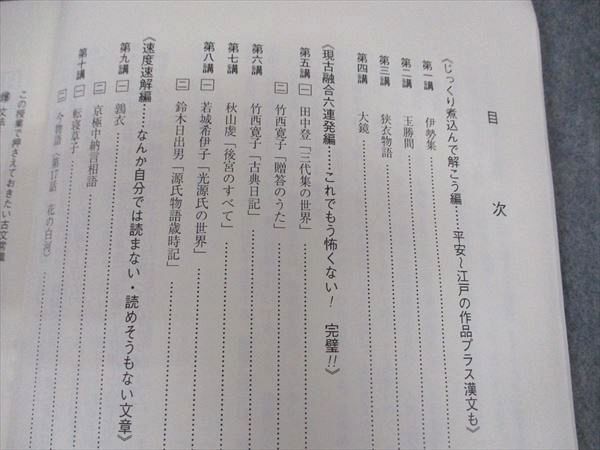 目　次
《じっくり煮込んで解こう編……平安～江戸の作品プラス漢文も》
第一講　伊勢集
第二講　玉勝間
第三講　狭衣物語
第四講　大鏡
《現古融合六連発編……これでもう怖くない！　完璧!!》
第五講　一　田中登「三代集の世界」
二　竹西寛子「贈答のうた」
第六講　竹西寛子「古典日記」
第七講　秋山虔「後宮のすべて」
第八講　一　若城希伊子「光源氏の世界」
二　鈴木日出男「源氏物語歳時記」
《速度速解編……なんか自分では読まない・読めそうもない文章》
第九講　一　鶉衣
二　京極中納言相語
第十講　一　転寝草子
二　今物語（第17話　花の白河）
この授業で押さえておきたい古文常識